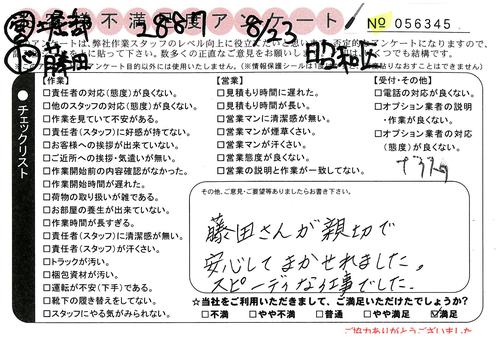 不満 アンケート 28887 8/23 № 056345
藤田 昭和区
アンケートは、弊社作業スタッフのレベル向上に役立てたいと思います。否定的なアンケートになりますので、
【作業】
□責任者の対応(態度)が良くない。
□他のスタッフの対応(態度)が良くない。
□作業を見ていて不安がある。
□責任者(スタッフ)に好感が持てない。
□お客様への挨拶が出来ていない。
□ご近所への挨拶・気遣いが無い。
□作業開始前の内容確認がなかった。
□作業開始時間が遅れた。
□荷物の取り扱いが雑である。
□お部屋の養生が出来ていない。
□作業時間が長すぎる。
□責任者(スタッフ)に清潔感が無い。
□責任者(スタッフ)が汗くさい。
□トラックが汚い。
□梱包資材が汚い。
□運転が不安(下手)である。
□靴下の履き替えをしてない。
□スタッフにやる気がみられない。
チェックリスト
【営業】
□見積もり時間に遅れた。
□見積もり時間が長い。
□営業マンに清潔感が無い。
□営業マンが煙草くさい。
□営業マンが汗くさい。
□営業態度が良くない。
□営業の説明と作業が一致してない。
【受付・その他】
□電話の対応が良くない。
□オプション業者の説明
・作業が良くない。
□オプション業者の対応
(態度)が良くない。
その他、ご意見・ご要望等ありましたらお書き下さい。
藤田さんが親切で
安心してまかせれました。
スピーディな仕事でした。
☆当社をご利用いただきまして、ご満足いただけたでしょうか?
□不満 □やや不満 □普通 □やや満足 ☑満足
ご協力ありがとうございました